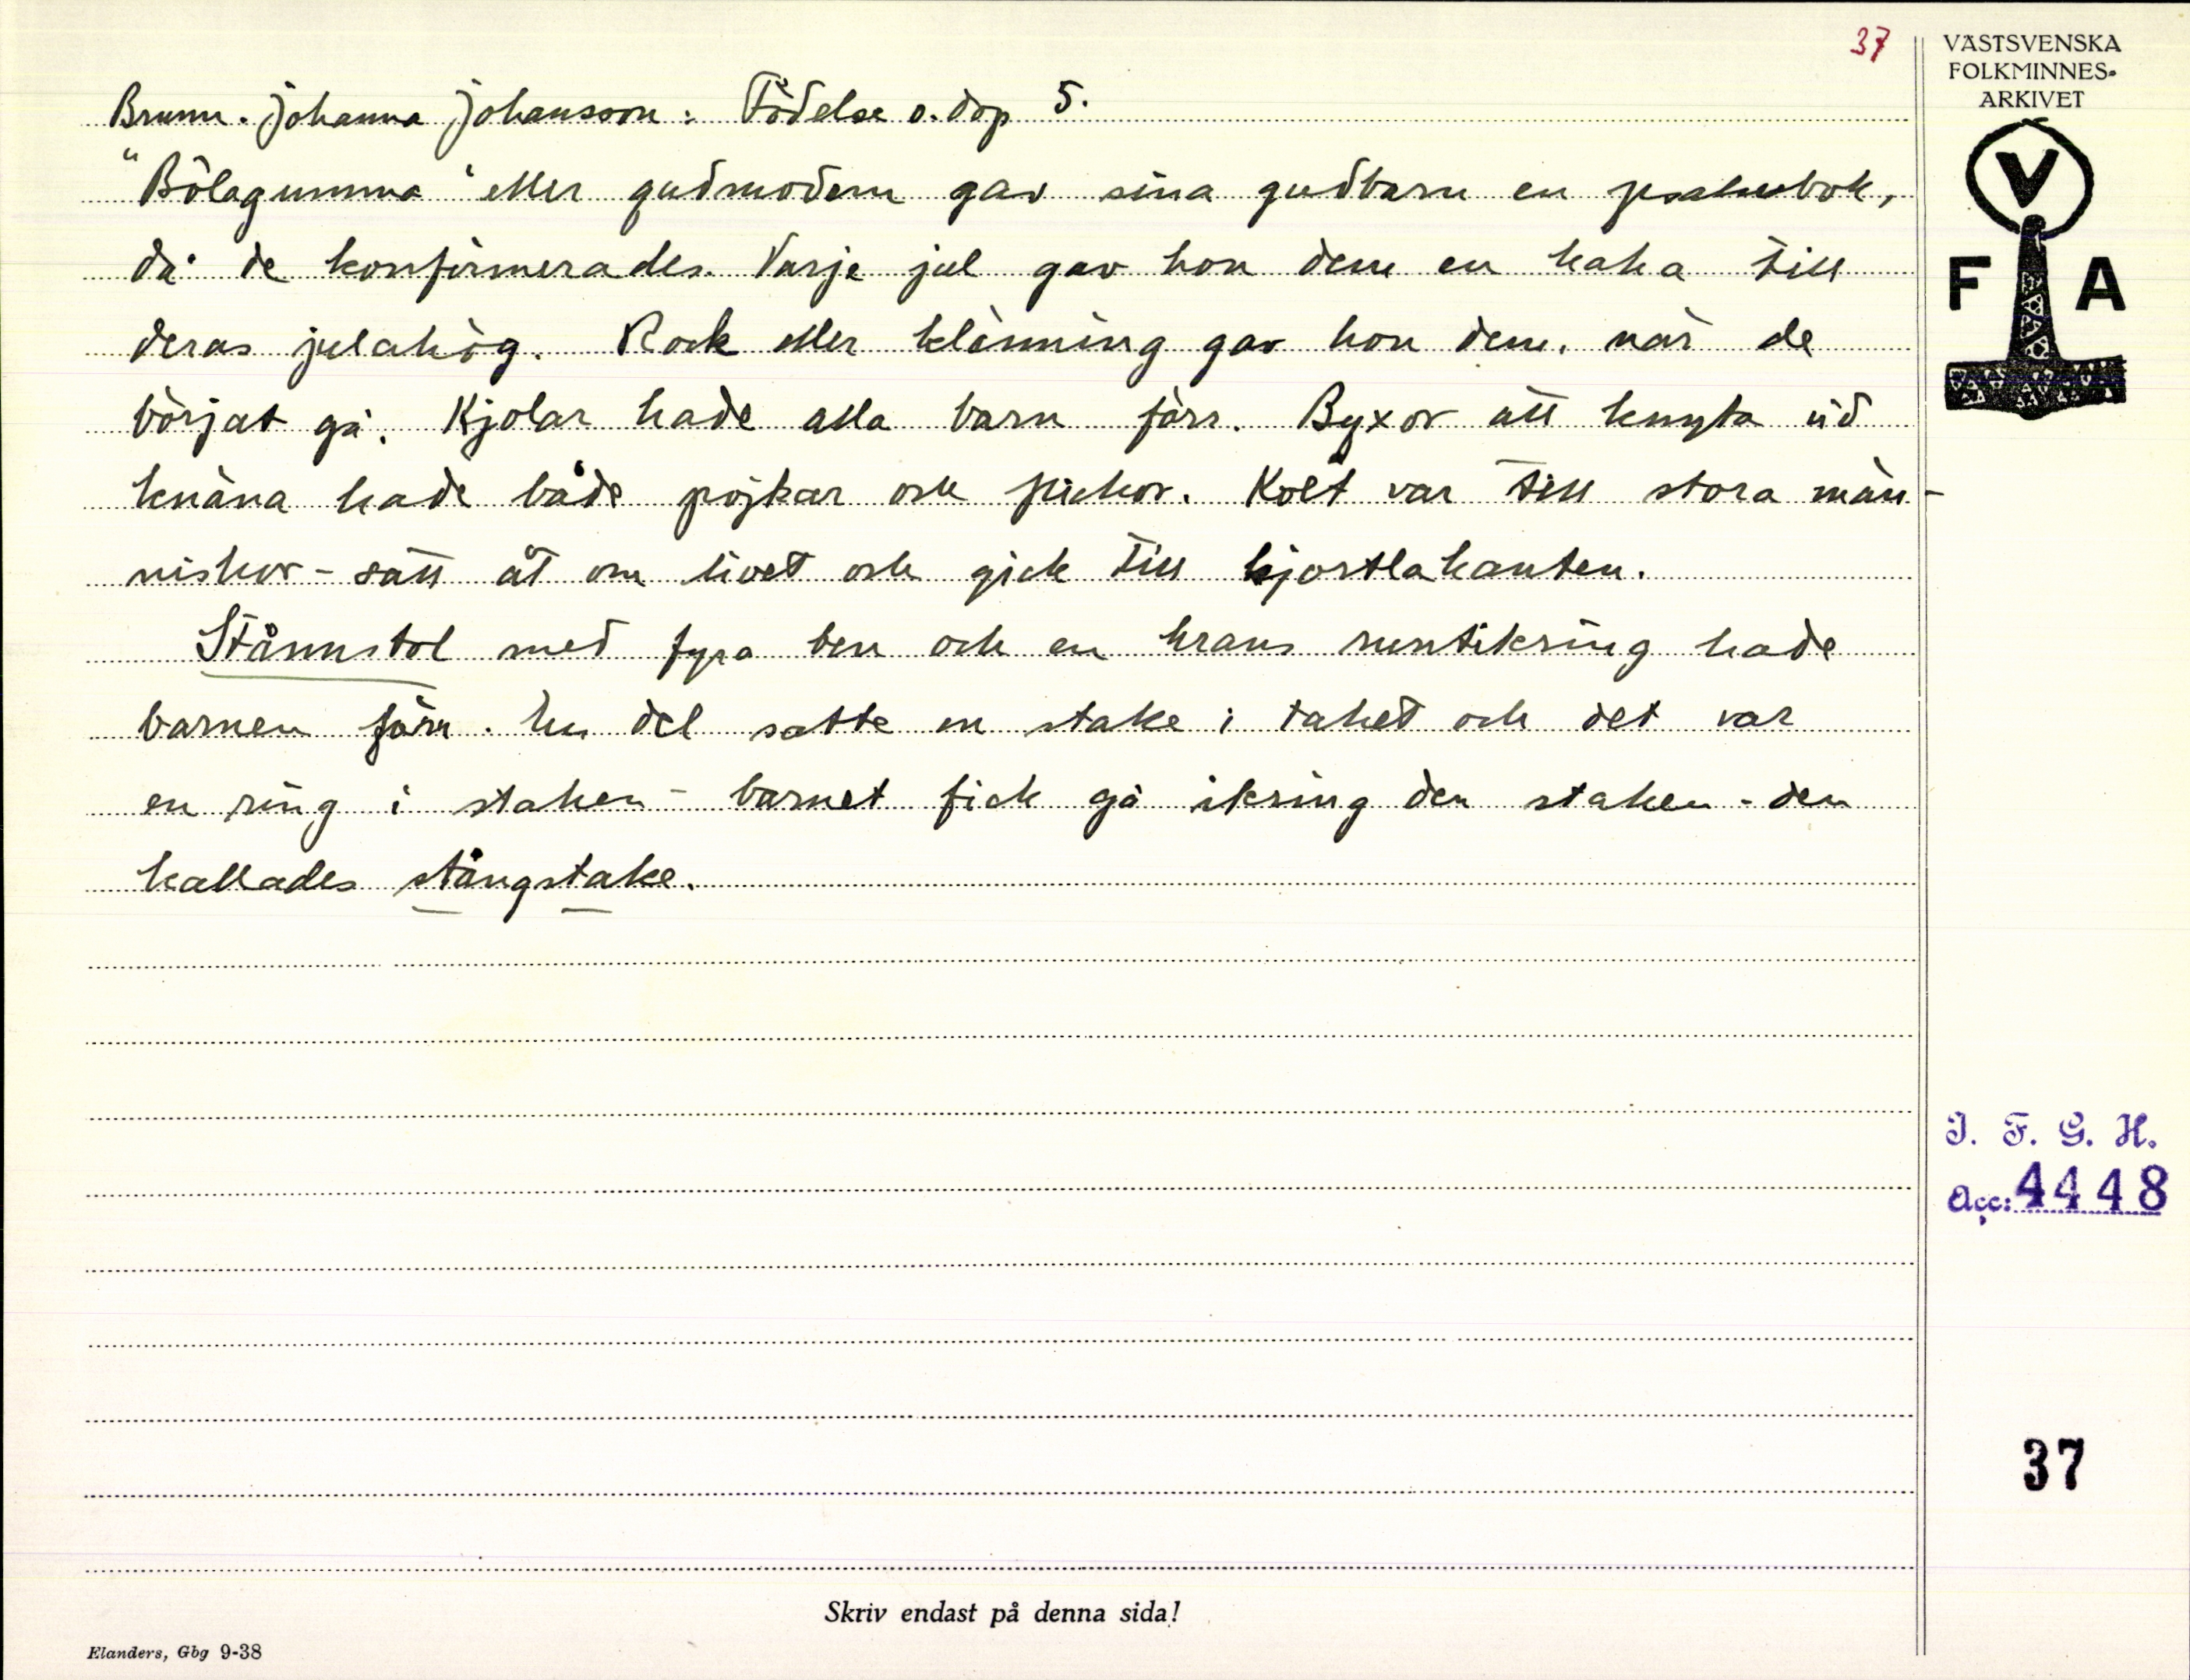 37
VÄSTSVENSKA
FOLKMINNES-
ARKIVET
V
F A
Brunn. Johanna Johansson: Födelse o. dop 5.
"Bölagumma" eller gudmodern gav sina gudbarn en psalmbok,
då de konfirmerades. Varje jul gav hon dem en kaka till
deras julahög. Rock eller klänning gav hon dem, när de
börjat gå. Kjolar hade alla barn förr. Byxor att knyta vid
knäna hade både pojkar och flickor. Kolt var till stora män-
niskor - satt åt om livet och gick till hjortlakanten.
Stånnstol med fyra ben och en krans runtikring hade
barnen förr. En del satte en stake i taket och det var
en ring i staken - barnet fick gå ikring den staken - den
kallades stångstake.
I. F. G. H.
Acc: 4448
37
Skriv endast på denna sida!
Elanders, Gbg 9-38